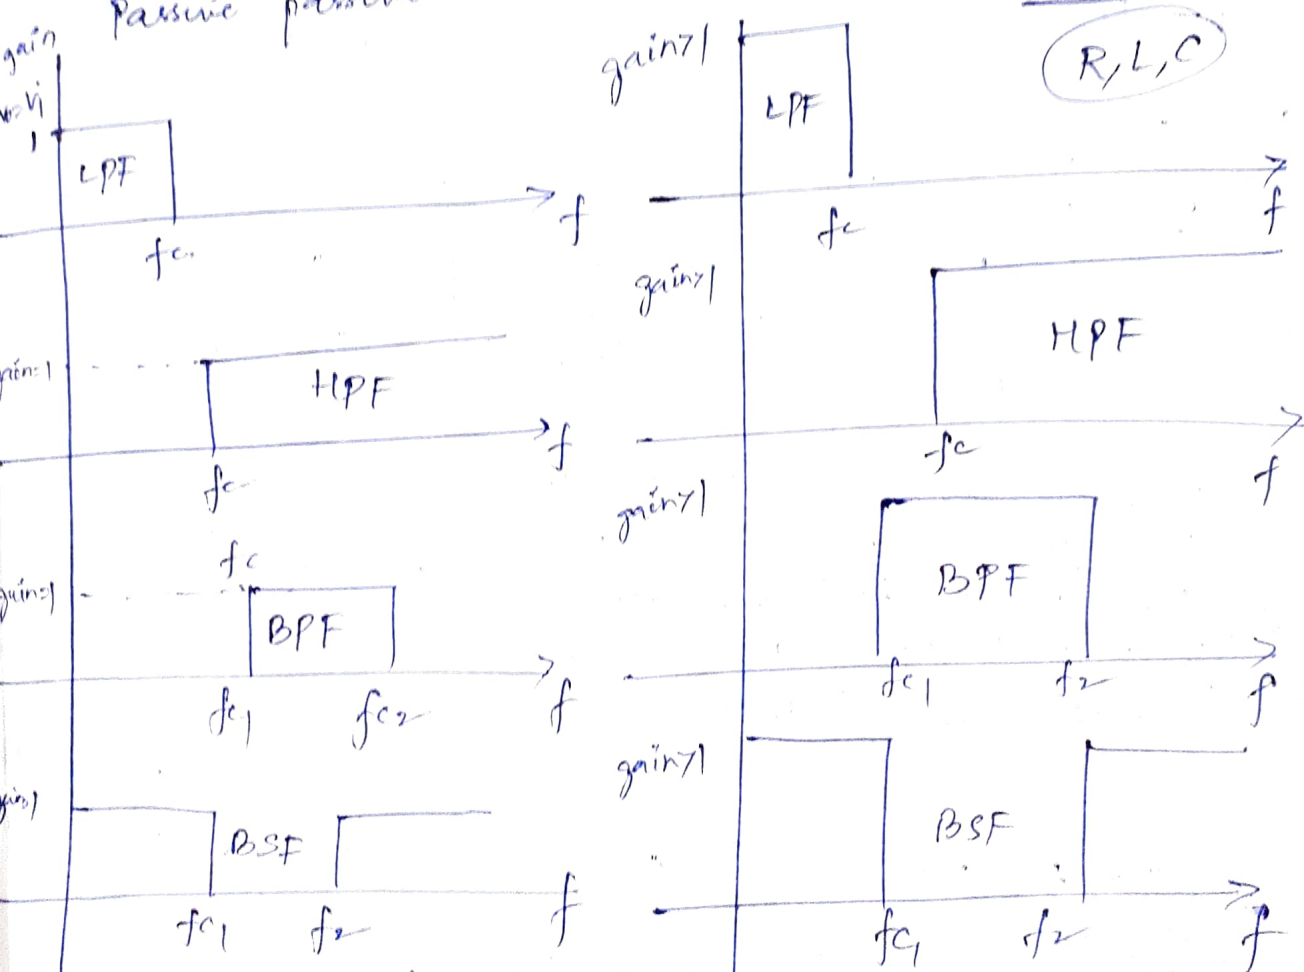 Passive
gain
Vi
1
LPF
fc
f
gain=1
HPF
fc
f
gain=1
fc
BPF
fc1
fc2
f
BSF
fc1
f2
f
R, L, C
gain>1
LPF
fc
f
gain>1
HPF
fc
f
gain>1
BPF
fc1
f2
f
gain>1
BSF
fc1
f2
f